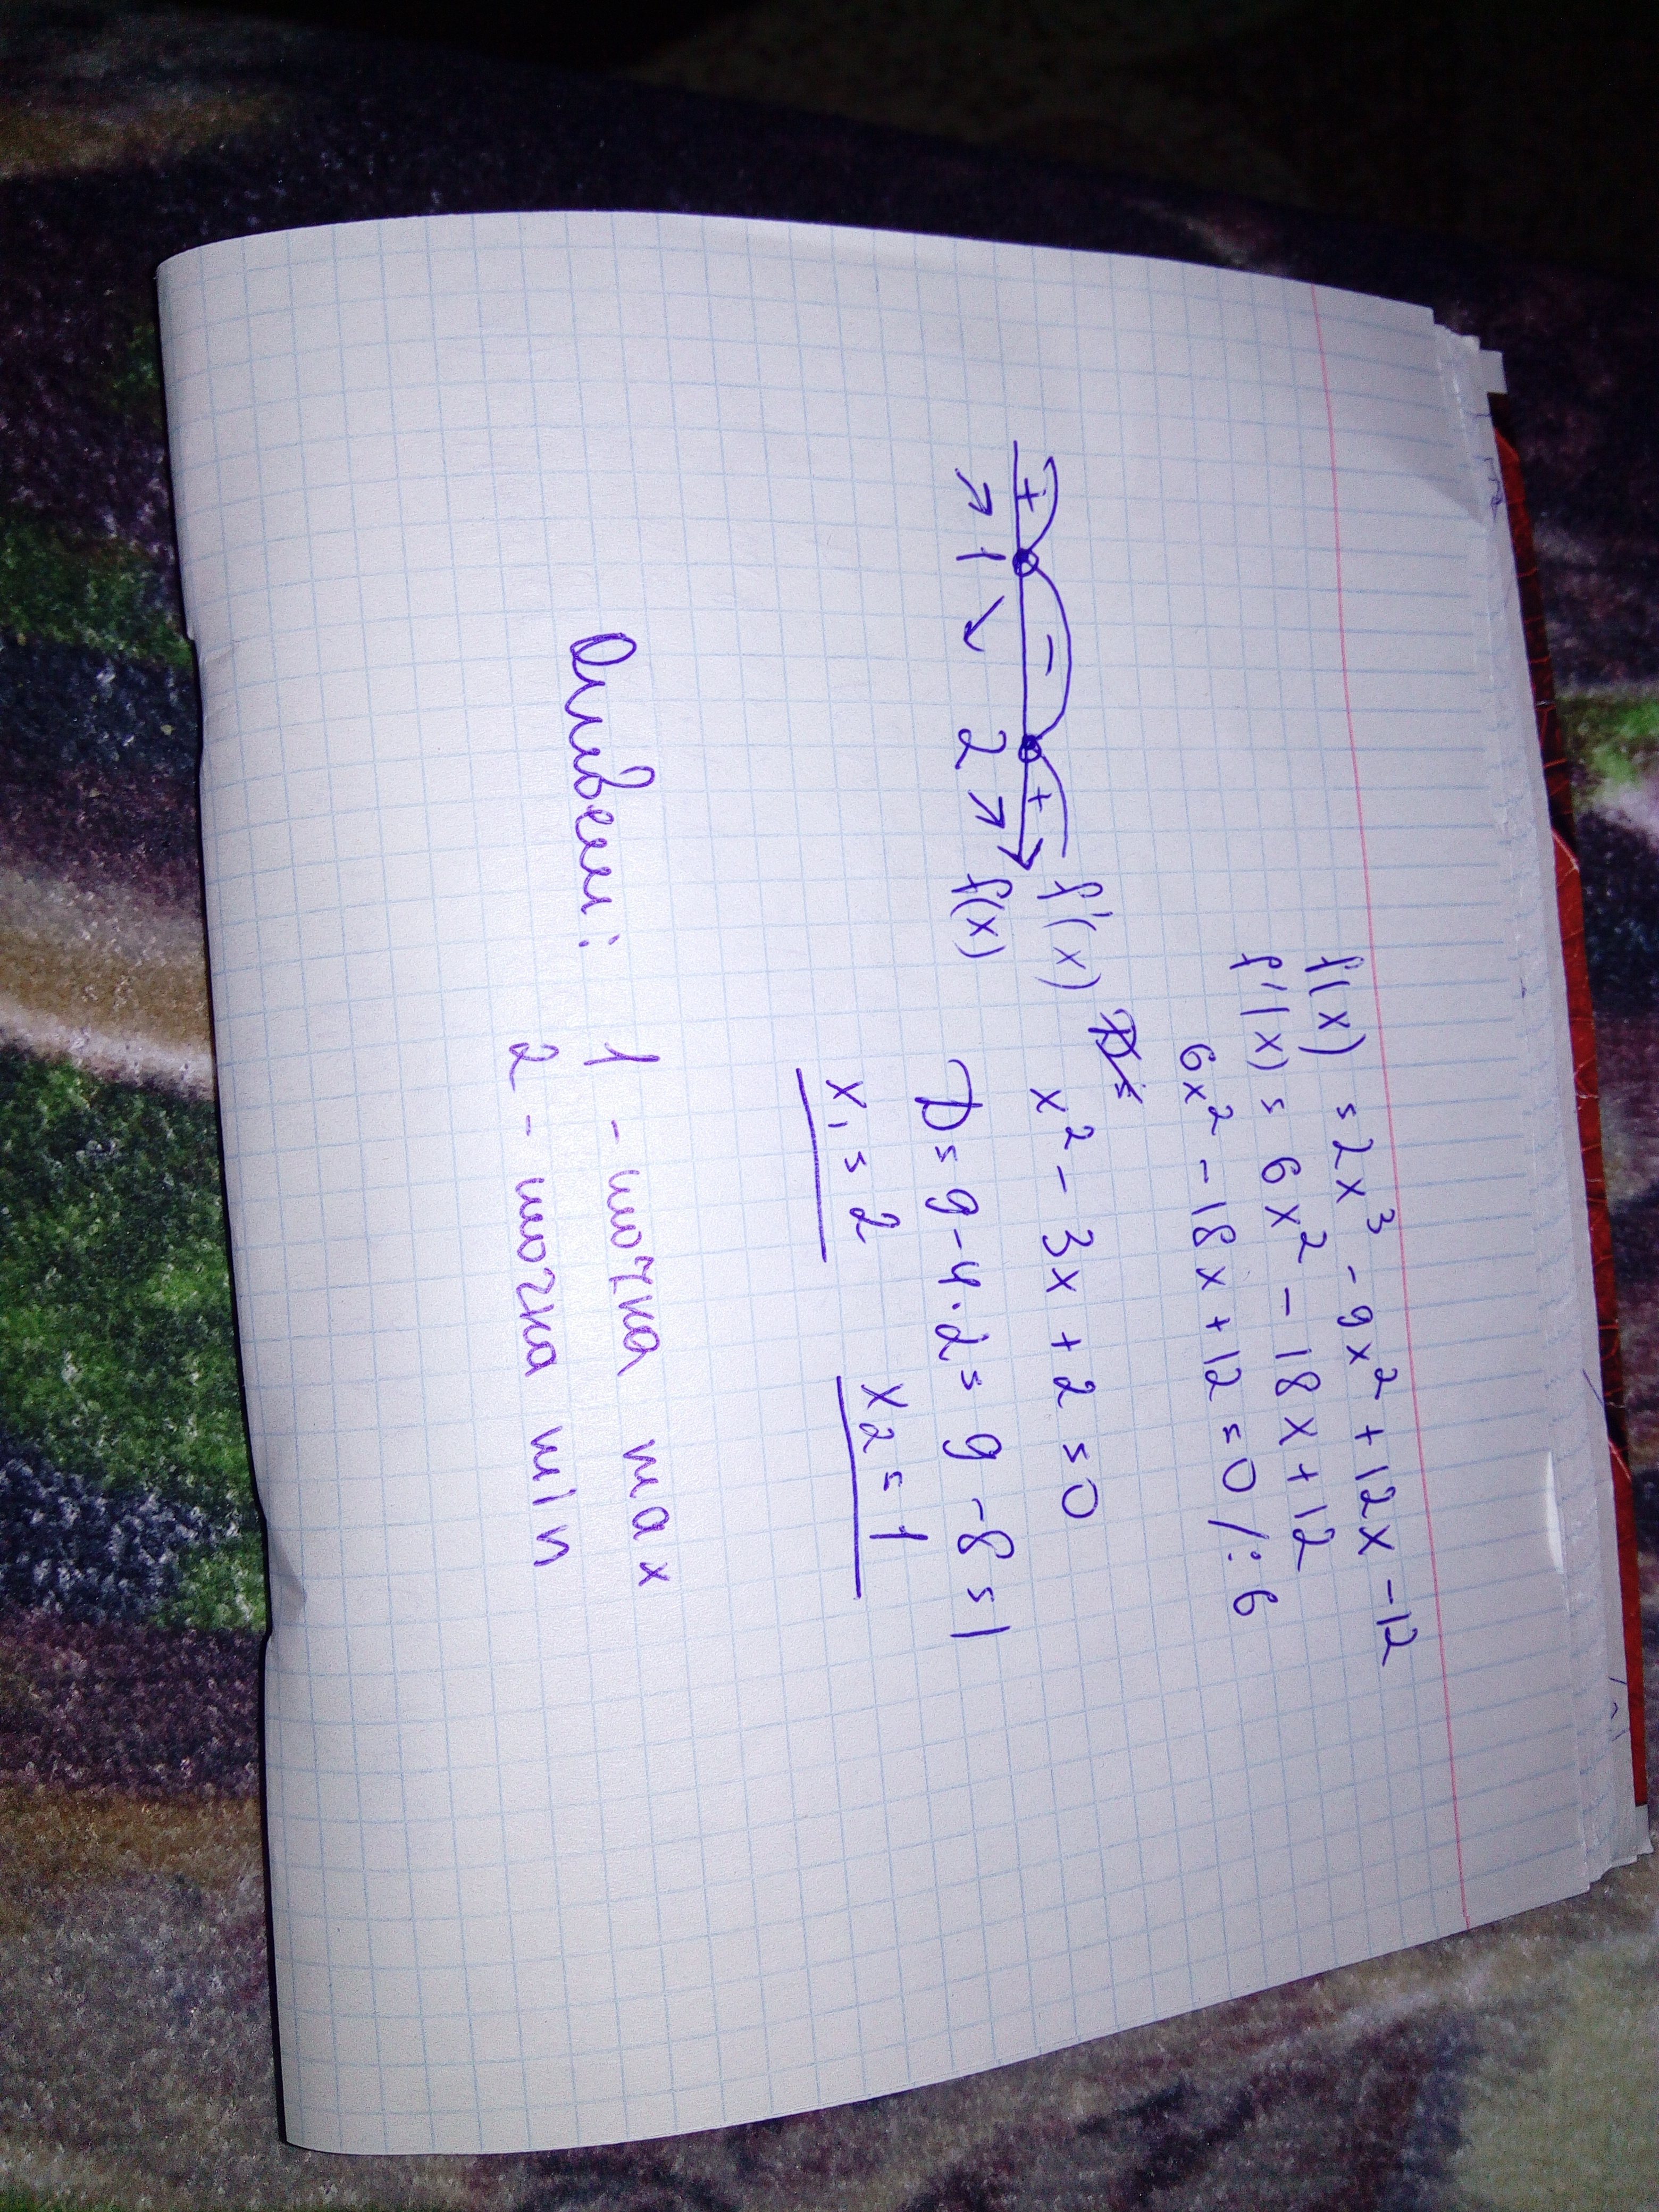 f(x) = 2x³ - 9x² + 12x - 12
f'(x) = 6x² - 18x + 12
6x² - 18x + 12 = 0 /: 6
x² - 3x + 2 = 0
D = 9 - 4 · 2 = 9 - 8 = 1
x₁ = 2 x₂ = 1
+ - + f'(x)
1 2 f(x)
Ответ: 1 - точка max
2 - точка min